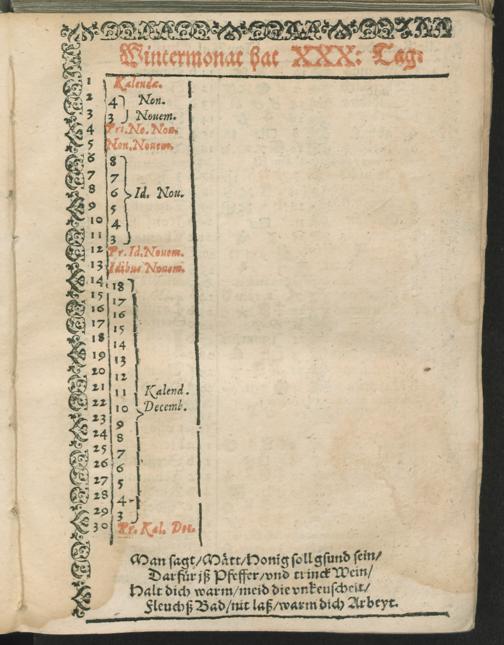 Wintermonat hat XXX: Tag.
1 Kalendæ.
2 4 Non.
3 3 Nouem.
4 Pri. No. Nou.
5 Non. Nouem.
6 8
7 7
8 6 Id. Nou.
9 5
10 4
11 3
12 Pr. Id. Nouem.
13 Idibus Nouem.
14 18
15 17
16 16
17 15
18 14
19 13
20 12
21 11 Kalend.
22 10 Decemb.
23 9
24 8
25 7
26 6
27 5
28 4
29 3
30 Pr. Kal. Dec.
Man sagt/Mätt/Honig soll gsund sein/
Darfür iß Pfeffer/vnd trinck Wein/
Halt dich warm/meid die vnkeuscheit/
Fleuchß Bad/nit laß/warm dich Arbeyt.